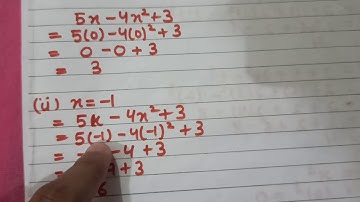 5x - 4x² + 3
= 5(0) - 4(0)² + 3
= 0 - 0 + 3
= 3
(ii) x = -1
= 5x - 4x² + 3
= 5(-1) - 4(-1)² + 3
= - 4 + 3
= + 3
6